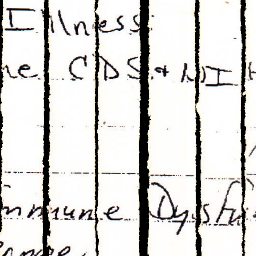 Illness
CDS & NIH
mmune Dysfu